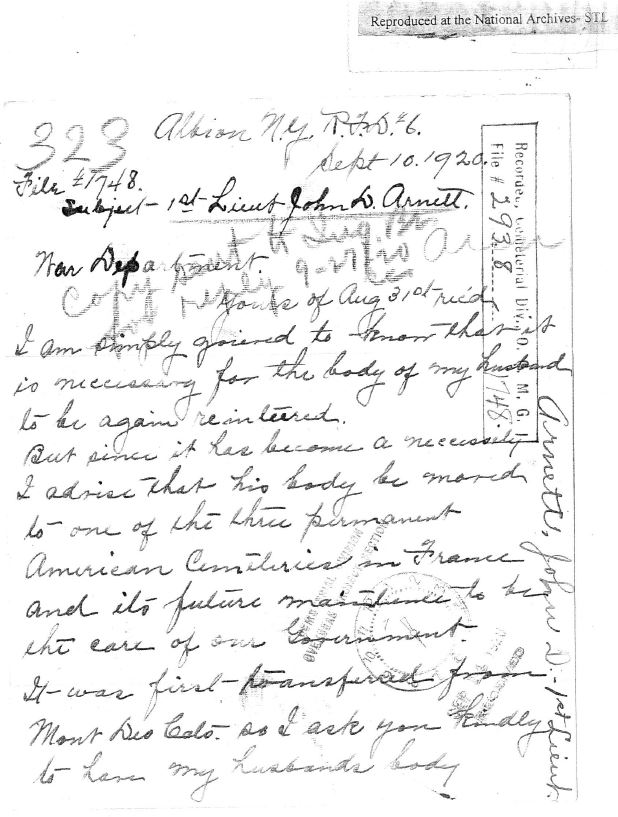 Reproduced at the National Archives- STL
323
Albion N.Y. R.F.D. #6.
Sept 10. 1920.
File #1748.
Subject - 1st Lieut John D. Arnett.
War Department.
Copy sent to
9-27-20
Yours of Aug 31st rec'd
I am simply griered to know that it
is neccessary for the body of my husband
to be again reinterred.
But since it has become a necessity
I advise that his body be moved
to one of the three permanent
American Cemteries in France
and its future maintence to be
the care of our Government.
It was first transferred from
Mont Des Cats. so I ask you kindly
to have my husbands body
Recorded, Cemeterial Div. O. Q. M. G.
File # 293.8
1748.
Arnett, John D. - 1st Lieut.